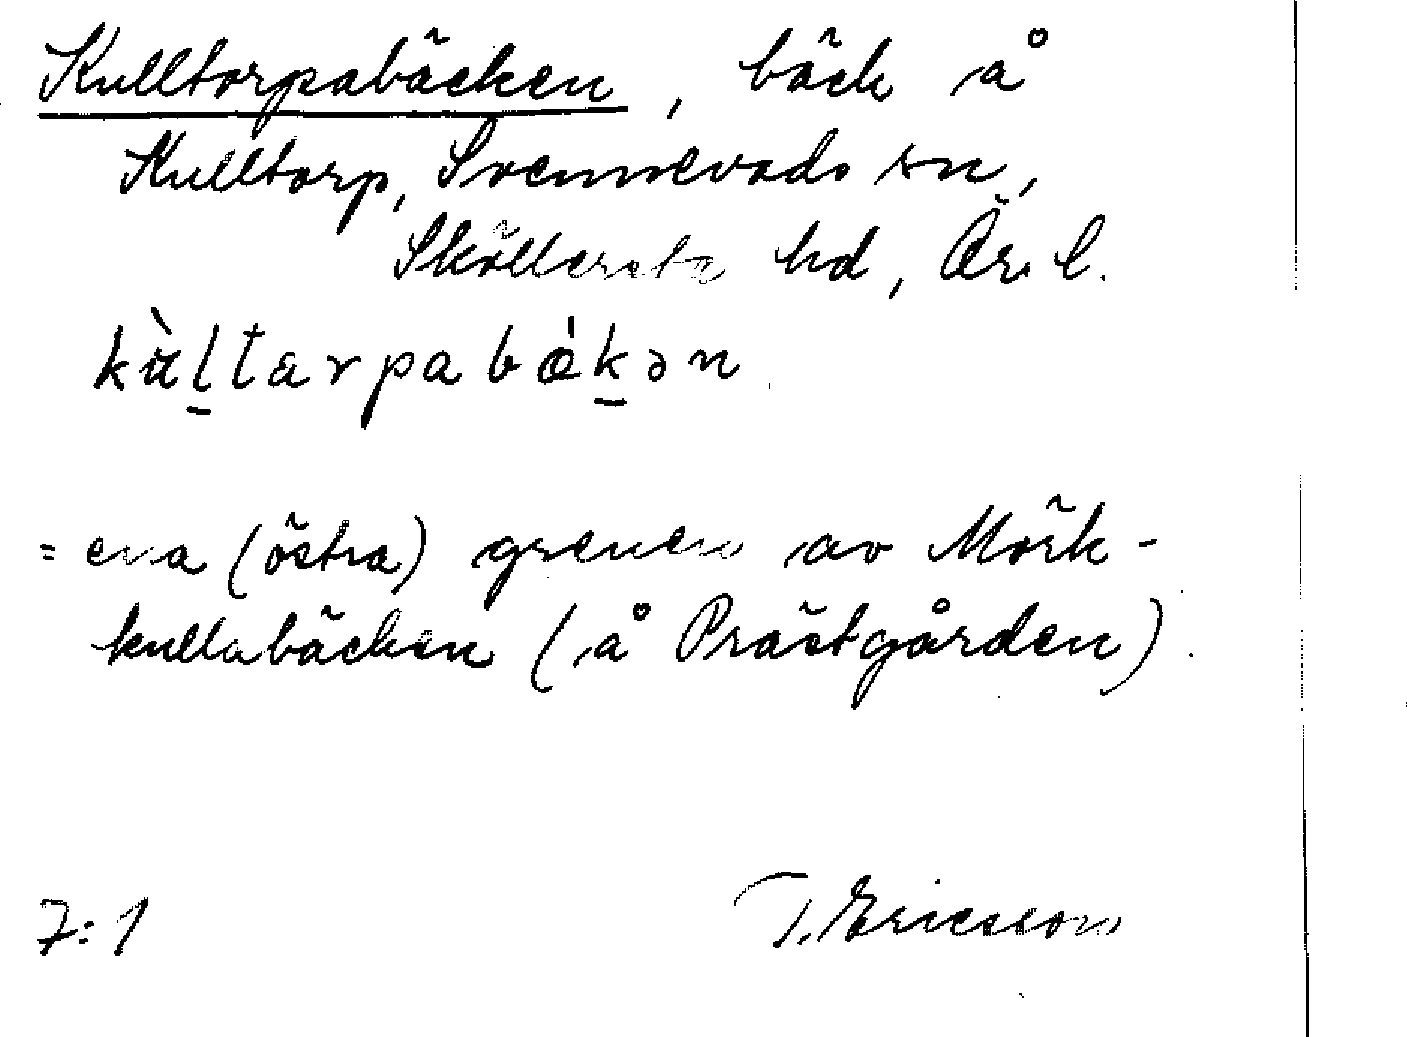 Kulltorpabäcken, bäck å
Kulltorp, Svennevads sn,
Sköllersta hd, Ör. l.
kùl̠tarpabǿk̠ən
= ena (östra) grenen av Mörk-
kullabäcken (å Prästgården).
7:1 T. Ericsson